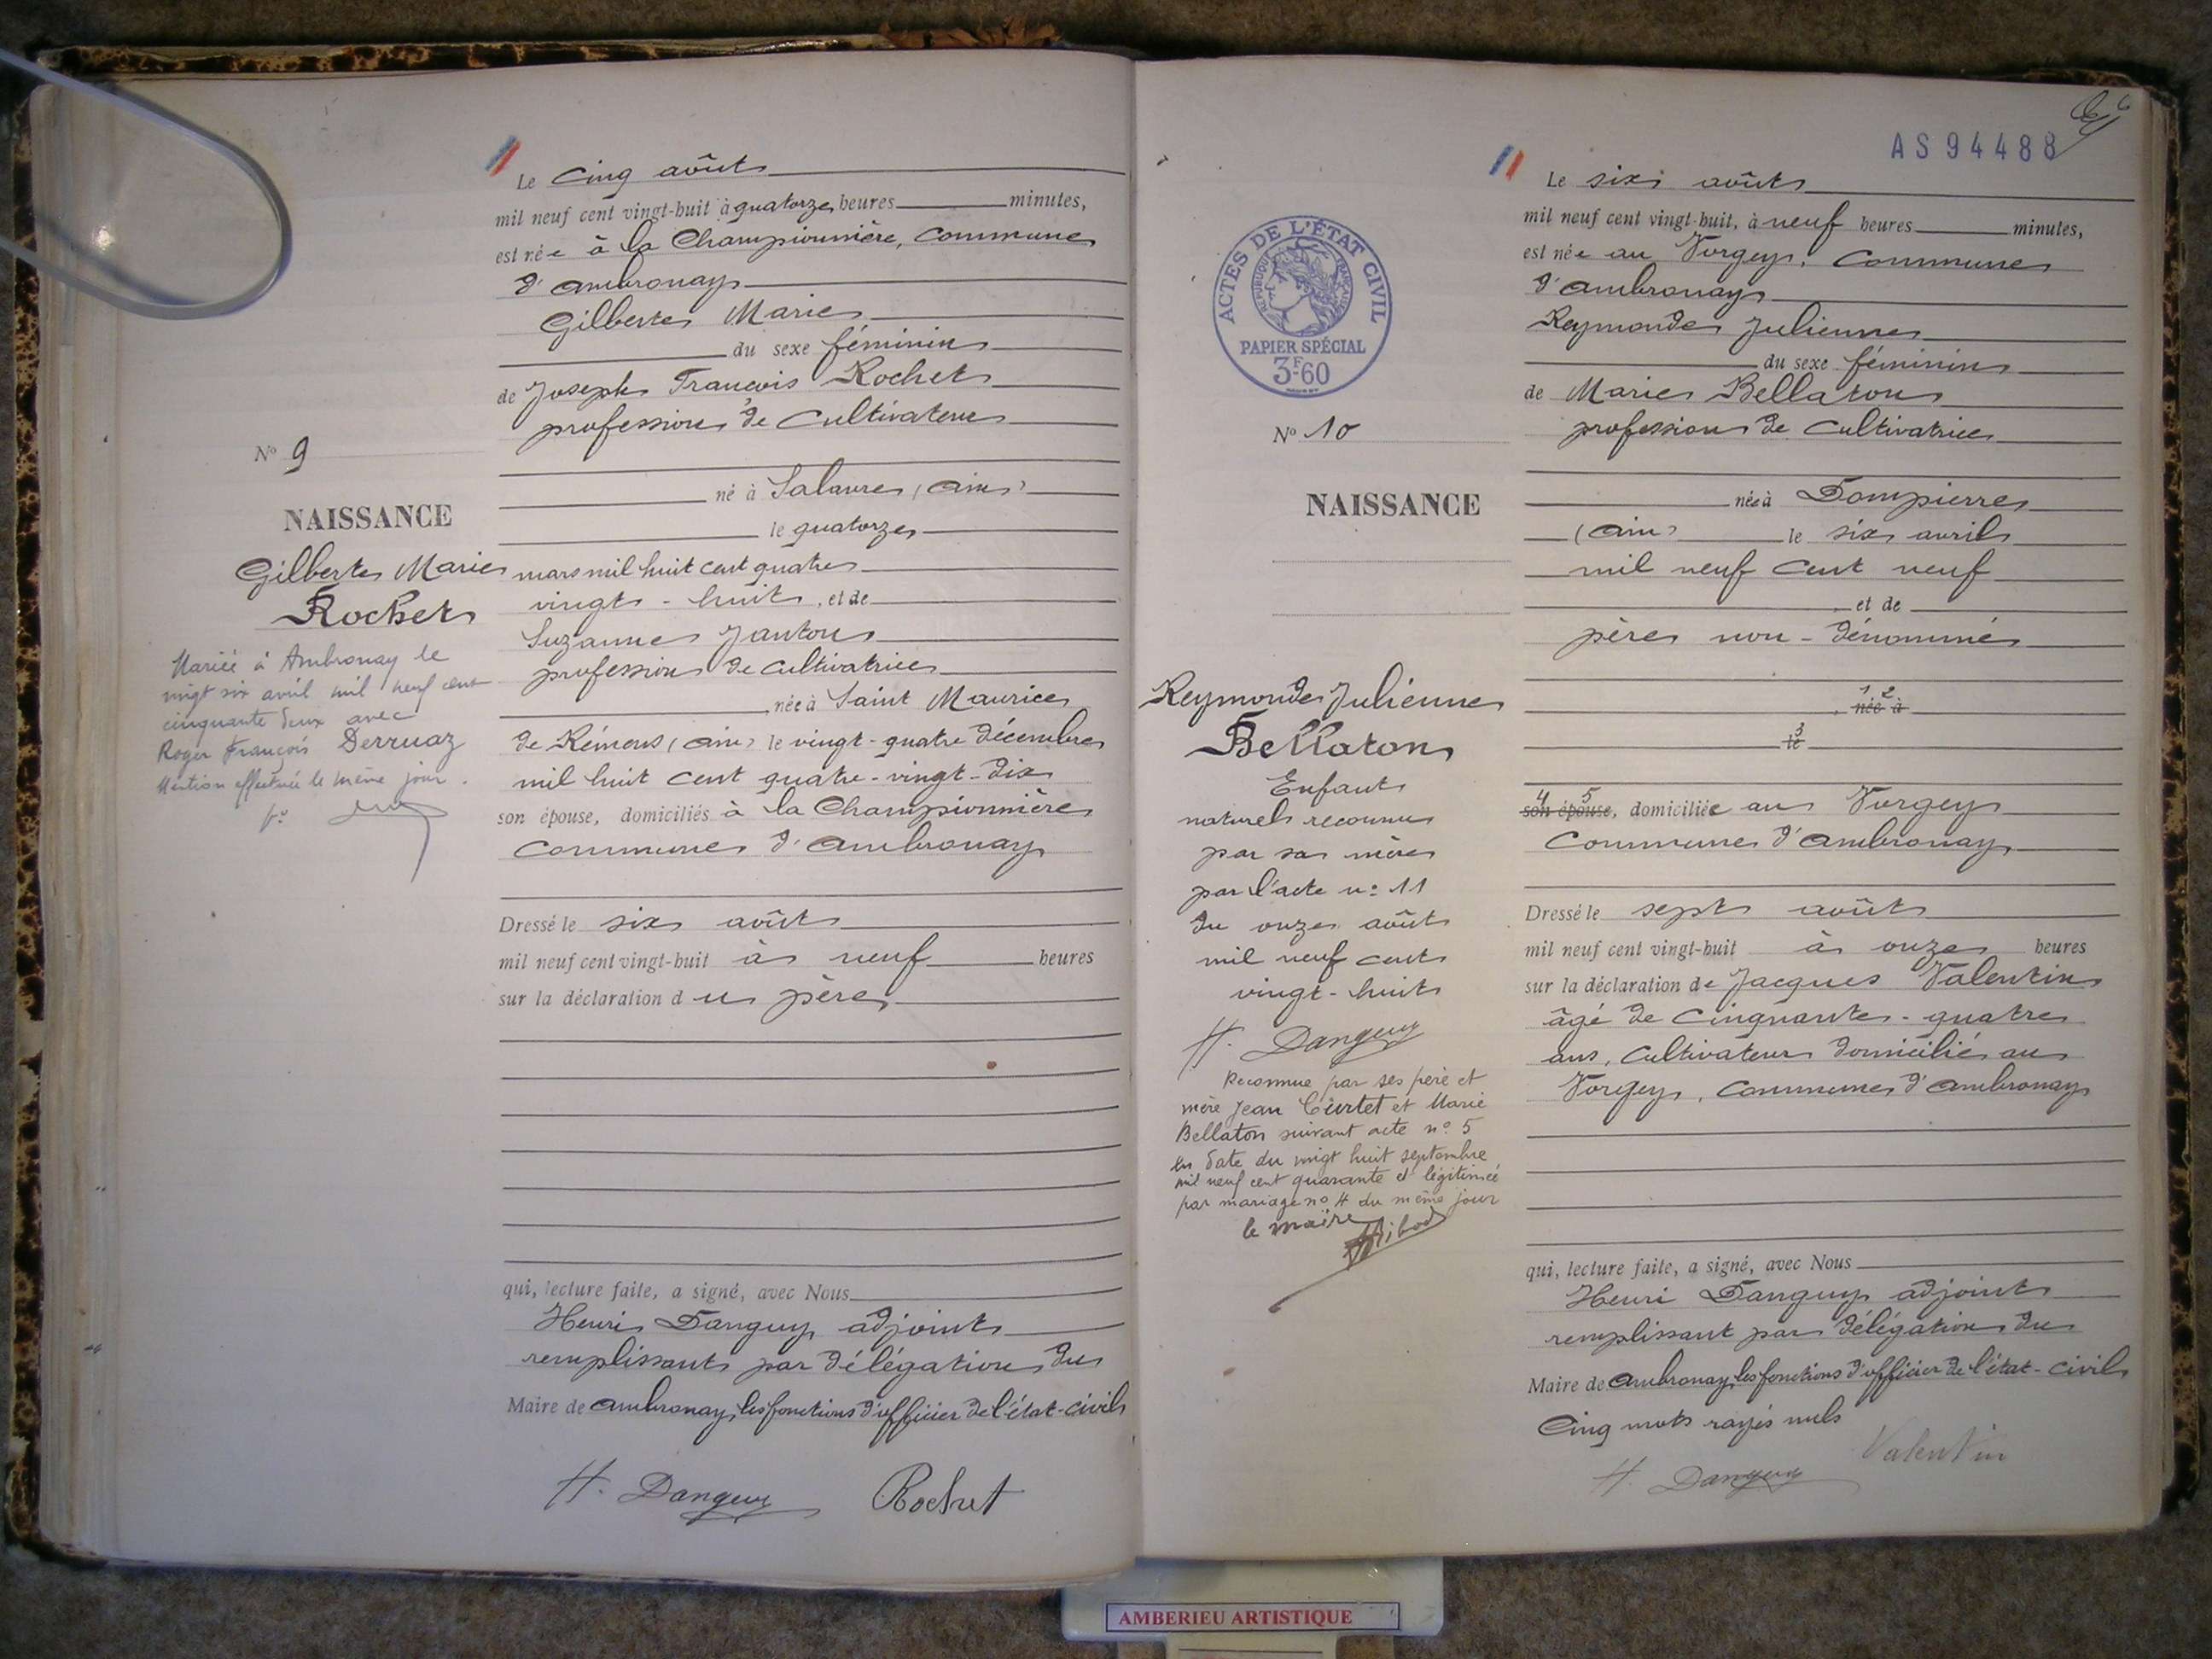 Le cinq août
mil neuf cent vingt-huit à quatorze heures minutes,
est née à la Championnière, commune
d'Ambronay
Gilberte Marie
du sexe féminin
de Joseph François Rochet
profession de cultivateur
né à Salavre (Ain)
le quatorze
mars mil huit cent quatre
vingt-huit, et de
Suzanne Janton
profession de cultivatrice
née à Saint Maurice
de Rémens (Ain) le vingt-quatre décembre
mil huit cent quatre-vingt-dix
son épouse, domiciliés à la Championnière
commune d'Ambronay
Dressé le six août
mil neuf cent vingt-huit à neuf heures
sur la déclaration du père
qui, lecture faite, a signé, avec Nous
Henri Danguy adjoint
remplissant par délégation du
Maire de Ambronay, les fonctions d'officier de l'état-civil
H. Danguy Rochet
No 9
NAISSANCE
Gilberte Marie
Rochet
Mariée à Ambronay le
vingt six avril mil neuf cent
cinquante deux avec
Roger François Derruaz
Mention effectuée le même jour.
AS94488
ACTES DE L'ÉTAT CIVIL
RÉPUBLIQUE FRANÇAISE
PAPIER SPÉCIAL
3F60
No 10
NAISSANCE
Reymonde Julienne
Bellaton
Enfant
naturel reconnu
par sa mère
par l'acte no 11
du onze août
mil neuf cent
vingt-huit
H. Danguy
Reconnue par ses père et
mère Jean Curtet et Marie
Bellaton suivant acte no 5
en date du vingt huit septembre
mil neuf cent quarante et légitimée
par mariage no 4 du même jour
le maire
Le six août
mil neuf cent vingt-huit, à neuf heures minutes,
est née au Vorgey, commune
d'Ambronay
Reymonde Julienne
du sexe féminin
de Marie Bellaton
profession de cultivatrice
née à Dompierre
(Ain) le six avril
mil neuf cent neuf
et de
père non-dénommé
1 2
née à
3
le
4 5
son épouse, domiciliée au Vorgey
commune d'Ambronay
Dressé le sept août
mil neuf cent vingt-huit à onze heures
sur la déclaration de Jacques Valentin
âgé de cinquante-quatre
ans, cultivateur domicilié au
Vorgey, commune d'Ambronay
qui, lecture faite, a signé, avec Nous
Henri Danguy adjoint
remplissant par délégation du
Maire de Ambronay, les fonctions d'officier de l'état-civil
Cinq mots rayés nuls
Valentin
H. Danguy
AMBERIEU ARTISTIQUE